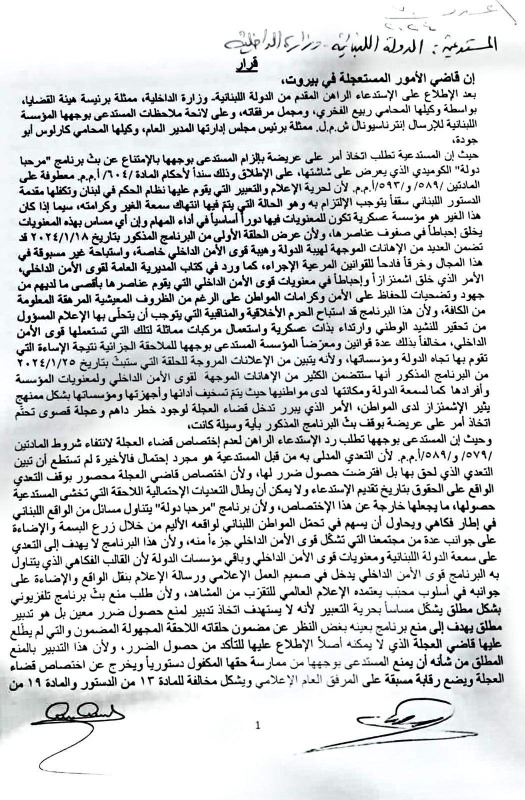 عدد
٢٠٢٤
المستدعية: الدولة اللبنانية - وزارة الداخلية
قرار
إن قاضي الأمور المستعجلة في بيروت،
بعد الإطلاع على الإستدعاء الراهن المقدم من الدولة اللبنانية- وزارة الداخلية، ممثلة برئيسة هيئة القضايا،
بواسطة وكيلها المحامي ربيع الفخري، ومجمل مرفقاته، وعلى لائحة ملاحظات المستدعى بوجهها المؤسسة
اللبنانية للإرسال إنترناسيونال ش.م.ل. ممثلة برئيس مجلس إدارتها المدير العام، وكيلها المحامي كارلوس أبو
جودة،
حيث إن المستدعية تطلب اتخاذ أمر على عريضة بإلزام المستدعى بوجهها بالإمتناع عن بثّ برنامج "مرحبا
دولة" الكوميدي الذي يعرض على شاشتها، على الإطلاق وذلك سنداً لأحكام المادة /٦٠٤/ أ.م.م. معطوفة على
المادتين /٥٨٩/ و/٥٩٣/أ.م.م. لأن لحرية الإعلام والتعبير التي يقوم عليها نظام الحكم في لبنان وتكفلها مقدمة
الدستور اللبناني سقفاً يتوجب الإلتزام به وهو الحالة التي يتمّ فيها انتهاك سمعة الغير وكرامته، سيما إذا كان
هذا الغير هو مؤسسة عسكرية تكون للمعنويات فيها دوراً أساسياً في أداء المهام وإن أي مساس بهذه المعنويات
يخلق إحباطاً في صفوف عناصرها، ولأن عرض الحلقة الأولى من البرنامج المذكور بتاريخ ٢٠٢٤/١/١٨ قد
تضمن العديد من الإهانات الموجهة لهيبة الدولة وهيبة قوى الأمن الداخلي خاصة، واستباحة غير مسبوقة في
هذا المجال وخرقاً فادحاً للقوانين المرعية الإجراء، كما ورد في كتاب المديرية العامة لقوى الأمن الداخلي،
الأمر الذي خلق اشمئزازاً وإحباطاً في معنويات قوى الأمن الداخلي التي يقوم عناصرها بأقصى ما لديهم من
جهود وتضحيات للحفاظ على الأمن وكرامات المواطن على الرغم من الظروف المعيشية المرهقة المعلومة
من الكافة، ولأن هذا البرنامج قد استباح الحرم الأخلاقية والمناقبية التي يتوجب أن يتحلّى بها الإعلام المسؤول
من تحقير للنشيد الوطني وارتداء بذات عسكرية واستعمال مركبات مماثلة لتلك التي تستعملها قوى الأمن
الداخلي، مخالفاً بذلك عدة قوانين ومعرّضاً المؤسسة المستدعى بوجهها للملاحقة الجزائية نتيجة الإساءة التي
تقوم بها تجاه الدولة ومؤسساتها، ولأنه يتبين من الإعلانات المروجة للحلقة التي ستبثّ بتاريخ ٢٠٢٤/١/٢٥
من البرنامج المذكور أنها ستتضمن الكثير من الإهانات الموجهة لقوى الأمن الداخلي ولمعنويات المؤسسة
وأفرادها كما لسمعة الدولة ومكانتها لدى مواطنيها حيث يتمّ تسخيف أدائها وأجهزتها ومؤسساتها بشكل ممنهج
يثير الإشمئزاز لدى المواطن، الأمر الذي يبرر تدخل قضاء العجلة لوجود خطر داهم وعجلة قصوى تحتّم
اتخاذ أمر على عريضة بوقف بثّ البرنامج المذكور بأية وسيلة كانت،
وحيث إن المستدعى بوجهها تطلب رد الإستدعاء الراهن لعدم إختصاص قضاء العجلة لانتفاء شروط المادتين
/٥٧٩/ و/٥٨٩/أ.م.م. لأن التعدي المدلى به من قبل المستدعية هو مجرد إحتمال فالأخيرة لم تستطع أن تبين
التعدي الذي لحق بها بل افترضت حصول ضرر لها، ولأن اختصاص قاضي العجلة محصور بوقف التعدي
الواقع على الحقوق بتاريخ تقديم الإستدعاء ولا يمكن أن يطال التعديات الإحتمالية اللاحقة التي تخشى المستدعية
حصولها، ما يجعلها خارجة عن هذا الإختصاص، ولأن برنامج "مرحبا دولة" يتناول مسائل من الواقع اللبناني
في إطار فكاهي ويحاول أن يسهم في تحمّل المواطن اللبناني لواقعه الأليم من خلال زرع البسمة والإضاءة
على جوانب عدة من مجتمعنا التي تشكّل قوى الأمن الداخلي جزءاً منه، ولأن هذا البرنامج لا يهدف إلى التعدي
على سمعة الدولة اللبنانية ومعنويات قوى الأمن الداخلي وباقي مؤسسات الدولة لأن القالب الفكاهي الذي يتناول
به البرنامج قوى الأمن الداخلي يدخل في صميم العمل الإعلامي ورسالة الإعلام بنقل الواقع والإضاءة على
جوانبه في أسلوب محبّب يعتمده الإعلام العالمي للتقرّب من المشاهد، ولأن طلب منع بثّ برنامج تلفزيوني
بشكل مطلق يشكّل مساساً بحرية التعبير لأنه لا يستهدف اتخاذ تدبير لمنع حصول ضرر معين بل هو تدبير
مطلق يهدف إلى منع برنامج بعينه بغض النظر عن مضمون حلقاته اللاحقة المجهولة المضمون والتي لم يطّلع
عليها قاضي العجلة الذي لا يمكنه أصلاً الإطلاع عليها للتأكد من حصول الضرر، ولأن هذا التدبير بالمنع
المطلق من شأنه أن يمنع المستدعى بوجهها من ممارسة حقها المكفول دستورياً ويخرج عن اختصاص قضاء
العجلة ويضع رقابة مسبقة على المرفق العام الإعلامي ويشكل مخالفة للمادة ١٣ من الدستور والمادة ١٩ من
1